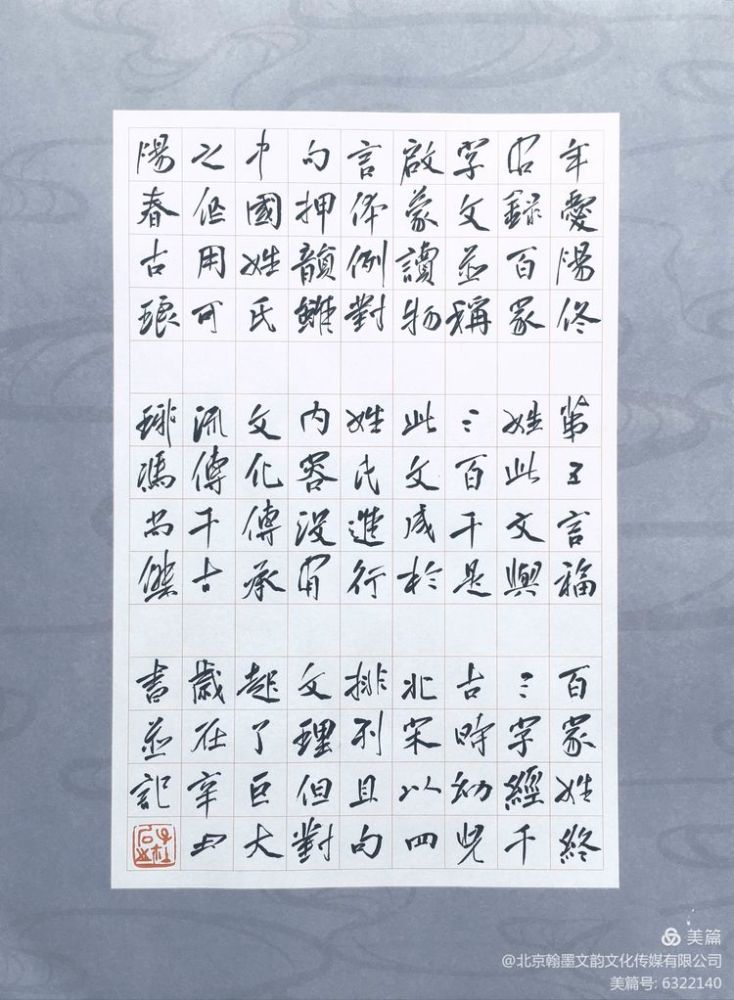 年愛陽佟 第五言福 百家姓終
右錄百家 姓此文與 三字經千
字文並稱 三百千是 古時幼兒
啟蒙讀物 此文成於 北宋以四
言体例對 姓氏進行 排列且句
句押韻雖 內容沒有 文理但對
中國姓氏 文化傳承 起了巨大
之作用可 流傳千古 歲在辛丑
陽春古琅 琊馮尚傑 書並記
美篇
@北京翰墨文韵文化传媒有限公司
美篇号: 6322140